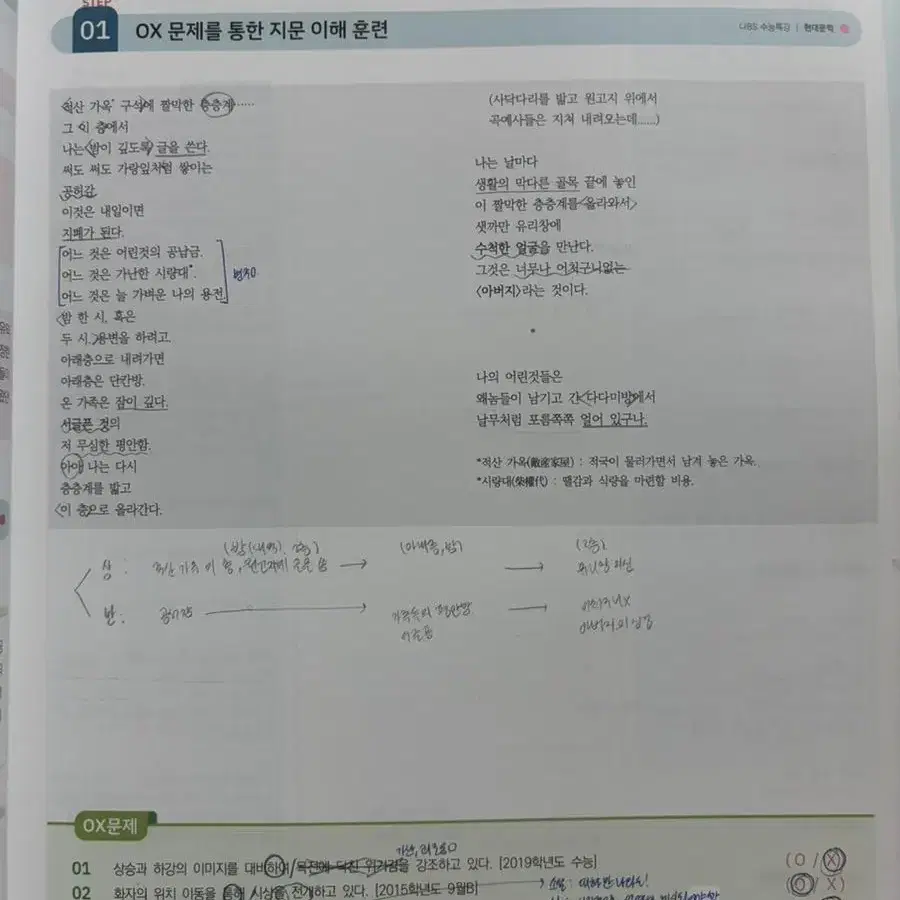 STEP
01 OX 문제를 통한 지문 이해 훈련
EBS 수능특강 | 현대문학
적산 가옥* 구석에 짤막한 층층계……
그 이 층에서
나는 밤이 깊도록 글을 쓴다.
써도 써도 가랑잎처럼 쌓이는
공허감
이것은 내일이면
지폐가 된다.
어느 것은 어린것의 공납금.
어느 것은 가난한 시량대*.
어느 것은 늘 가벼운 나의 용전.
밤 한 시, 혹은
두 시. 용변을 하려고.
아래층으로 내려가면
아래층은 단칸방.
온 가족은 잠이 깊다.
서글픈 것의
저 무심한 평안함.
아아 나는 다시
층층계를 밟고
이 층으로 올라간다.
(사닥다리를 밟고 원고지 위에서
곡예사들은 지쳐 내려오는데……)
나는 날마다
생활의 막다른 골목 끝에 놓인
이 짤막한 층층계를 올라와서
샛까만 유리창에
수척한 얼굴을 만난다.
그것은 너무나 어처구니없는
〈아버지〉라는 것이다.
*
나의 어린것들은
왜놈들이 남기고 간 다다미방에서
날무처럼 포름쪽쪽 얼어 있구나.
*적산 가옥(敵産家屋) : 적국이 물러가면서 남겨 놓은 가옥.
*시량대(柴糧代) : 땔감과 식량을 마련할 비용.
상 :
반 : 공허감
OX문제
01 상승과 하강의 이미지를 대비하여 목전에 닥친 위기감을 강조하고 있다. [2019학년도 수능] (O / X)
02 화자의 위치 이동을 통해 시상을 전개하고 있다. [2015학년도 9월B] (O / X)